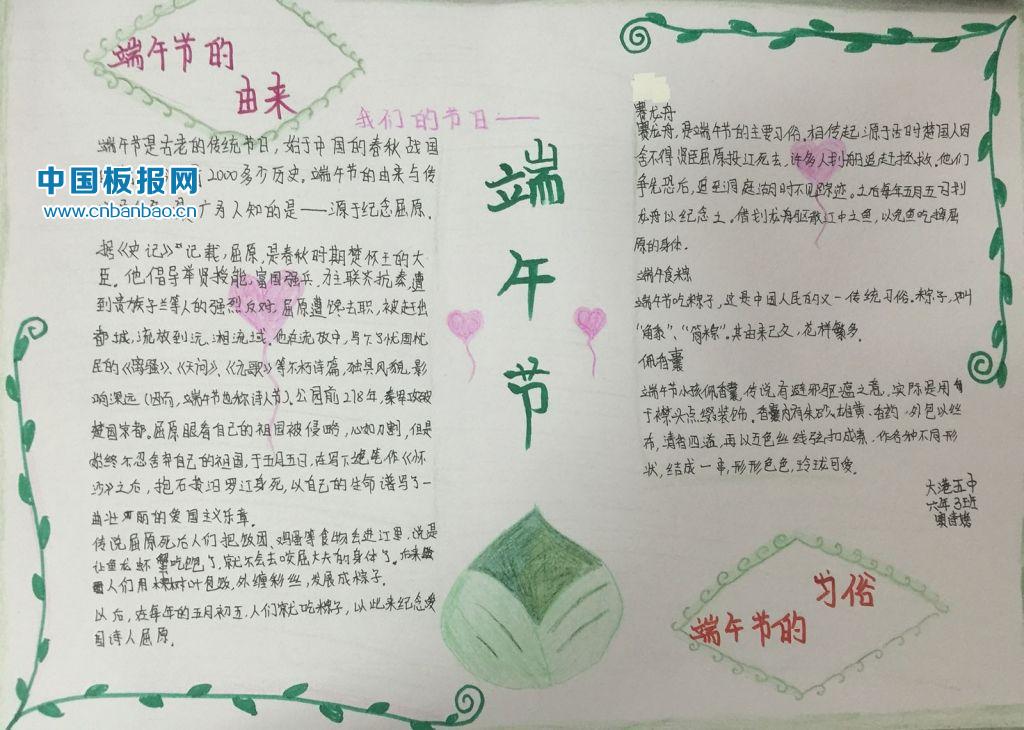 端午节的
由来
我们的节日——
端午节
端午节是古老的传统节日，始于中国的春秋战国
2000多少历史。端午节的由来与传
广为人知的是——源于纪念屈原。
中国板报网
www.cnbanbao.cn
据《史记》记载，屈原，是春秋时期楚怀王的大
臣。他倡导举贤授能，富国强兵，力主联齐抗秦，遭
到贵族子兰等人的强烈反对，屈原遭馋去职，被赶出
都城，流放到沅、湘流域。他在流放中，写下了忧国忧
民的《离骚》、《天问》、《九歌》等不朽诗篇，独具风貌，影
响深远（因而，端午节也称诗人节）。公园前278年，秦军攻破
楚国京都。屈原眼看自己的祖国被侵略，心如刀割，但是
始终不忍舍弃自己的祖国，于五月五日，在写下绝笔作《怀
沙》之后，抱石投汨罗江身死，以自己的生命谱写了一
曲壮丽的爱国主义乐章。
传说屈原死后人们把饭团、鸡蛋等食物丢进江里，说是
让鱼龙虾蟹吃饱了，就不会去咬屈大夫的身体了。后来
人们用树叶包饭，外缠彩丝，发展成棕子。
以后，在每年的五月初五，人们就吃粽子，以此来纪念爱
国诗人屈原。
赛龙舟
赛龙舟，是端午节的主要习俗。相传起源于古时楚国人因
舍不得贤臣屈原投江死去，许多人划船追赶拯救。他们
争先恐后，追至洞庭湖时不见踪迹。之后每年五月五日划
龙舟以纪念之。借划龙舟驱散江中之鱼，以免鱼吃掉屈
原的身体。
端午食粽
端午节吃粽子，这是中国人民的又一传统习俗。粽子，叫
“角黍”、“筒粽”。其由来已久，花样繁多。
佩香囊
端午节小孩佩香囊，传说有避邪驱瘟之意，实际是用
于襟头点缀装饰。香囊内有朱砂、雄黄、香药，外包以丝
布，清香四溢，再以五色丝线弦扣成索，作各种不同形
状，结成一串，形形色色，玲珑可爱。
大港五中
六年3班
端午节的
习俗